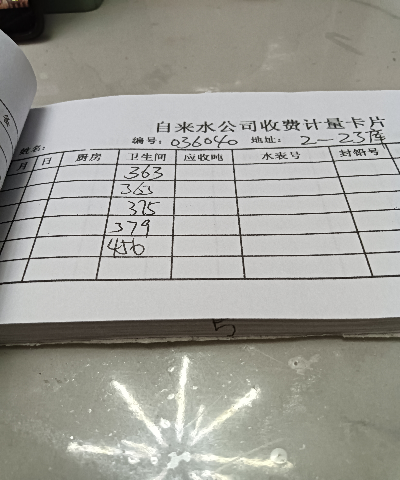 自来水公司收费计量卡片
姓名: 编号: 036040 地址: 2-23库
月 日 厨房 卫生间 应收吨 水表号 封铅号
363
363
375
379
456
5